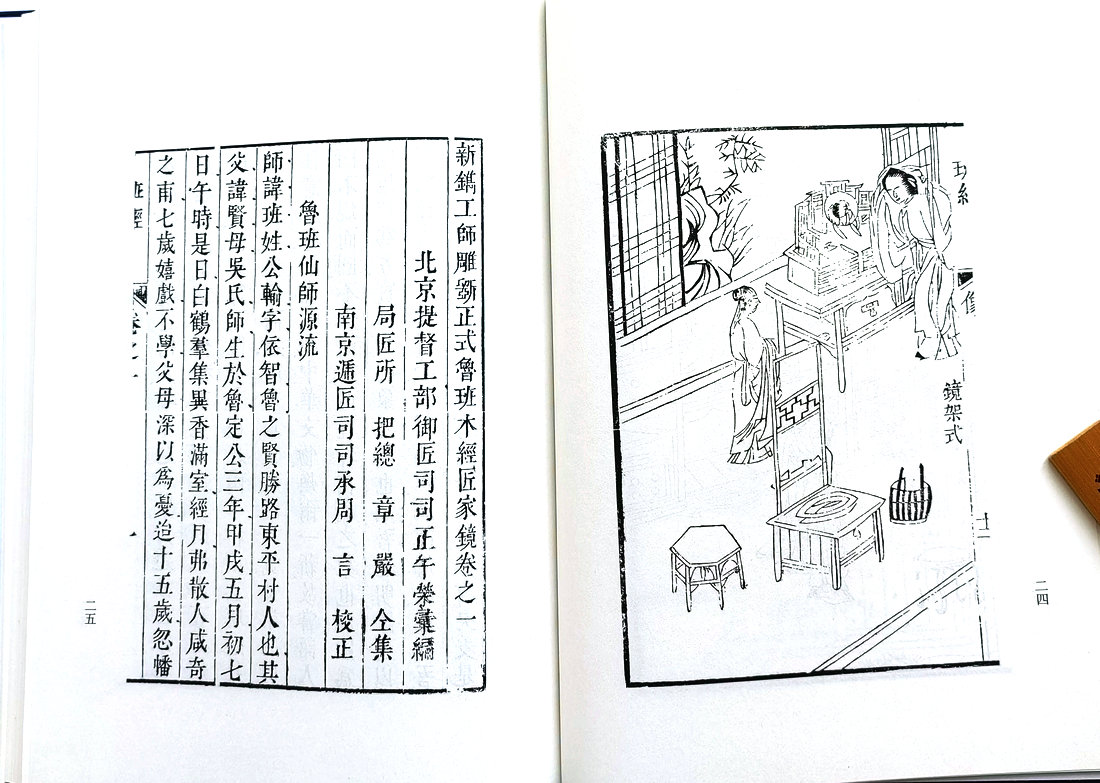 鏡架式
二四
新鐫工師雕斵正式魯班木經匠家鏡卷之一
北京提督工部御匠司司正午榮彙編
局匠所 把總 章 嚴 仝集
南京遞匠司司承周 言 校正
魯班仙師源流
師諱班姓公輸字依智魯之賢勝路東平村人也其
父諱賢母吳氏師生於魯定公三年甲戌五月初七
日午時是日白鶴羣集異香滿室經月弗散人咸奇
之甫七歲嬉戲不學父母深以爲憂迨十五歲忽幡
班經 卷之一 一
二五